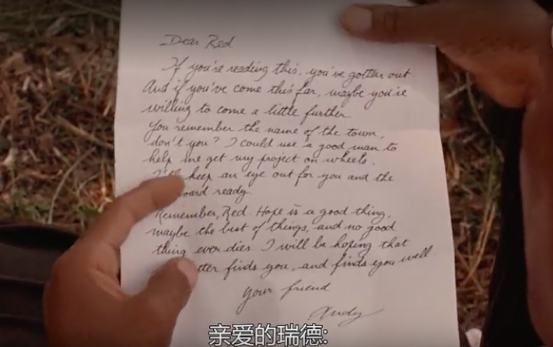 Dear Red
If you're reading this, you've gotten out.
And if you've come this far, maybe you're
willing to come a little further.
You remember the name of the town,
don't you? I could use a good man to
help me get my project on wheels.
keep an eye out for you and the
ready.
Remember, Red Hope is a good thing,
maybe the best of things, and no good
thing ever dies. I will be hoping that
finds you, and finds you well
Your friend
Andy
亲爱的瑞德: